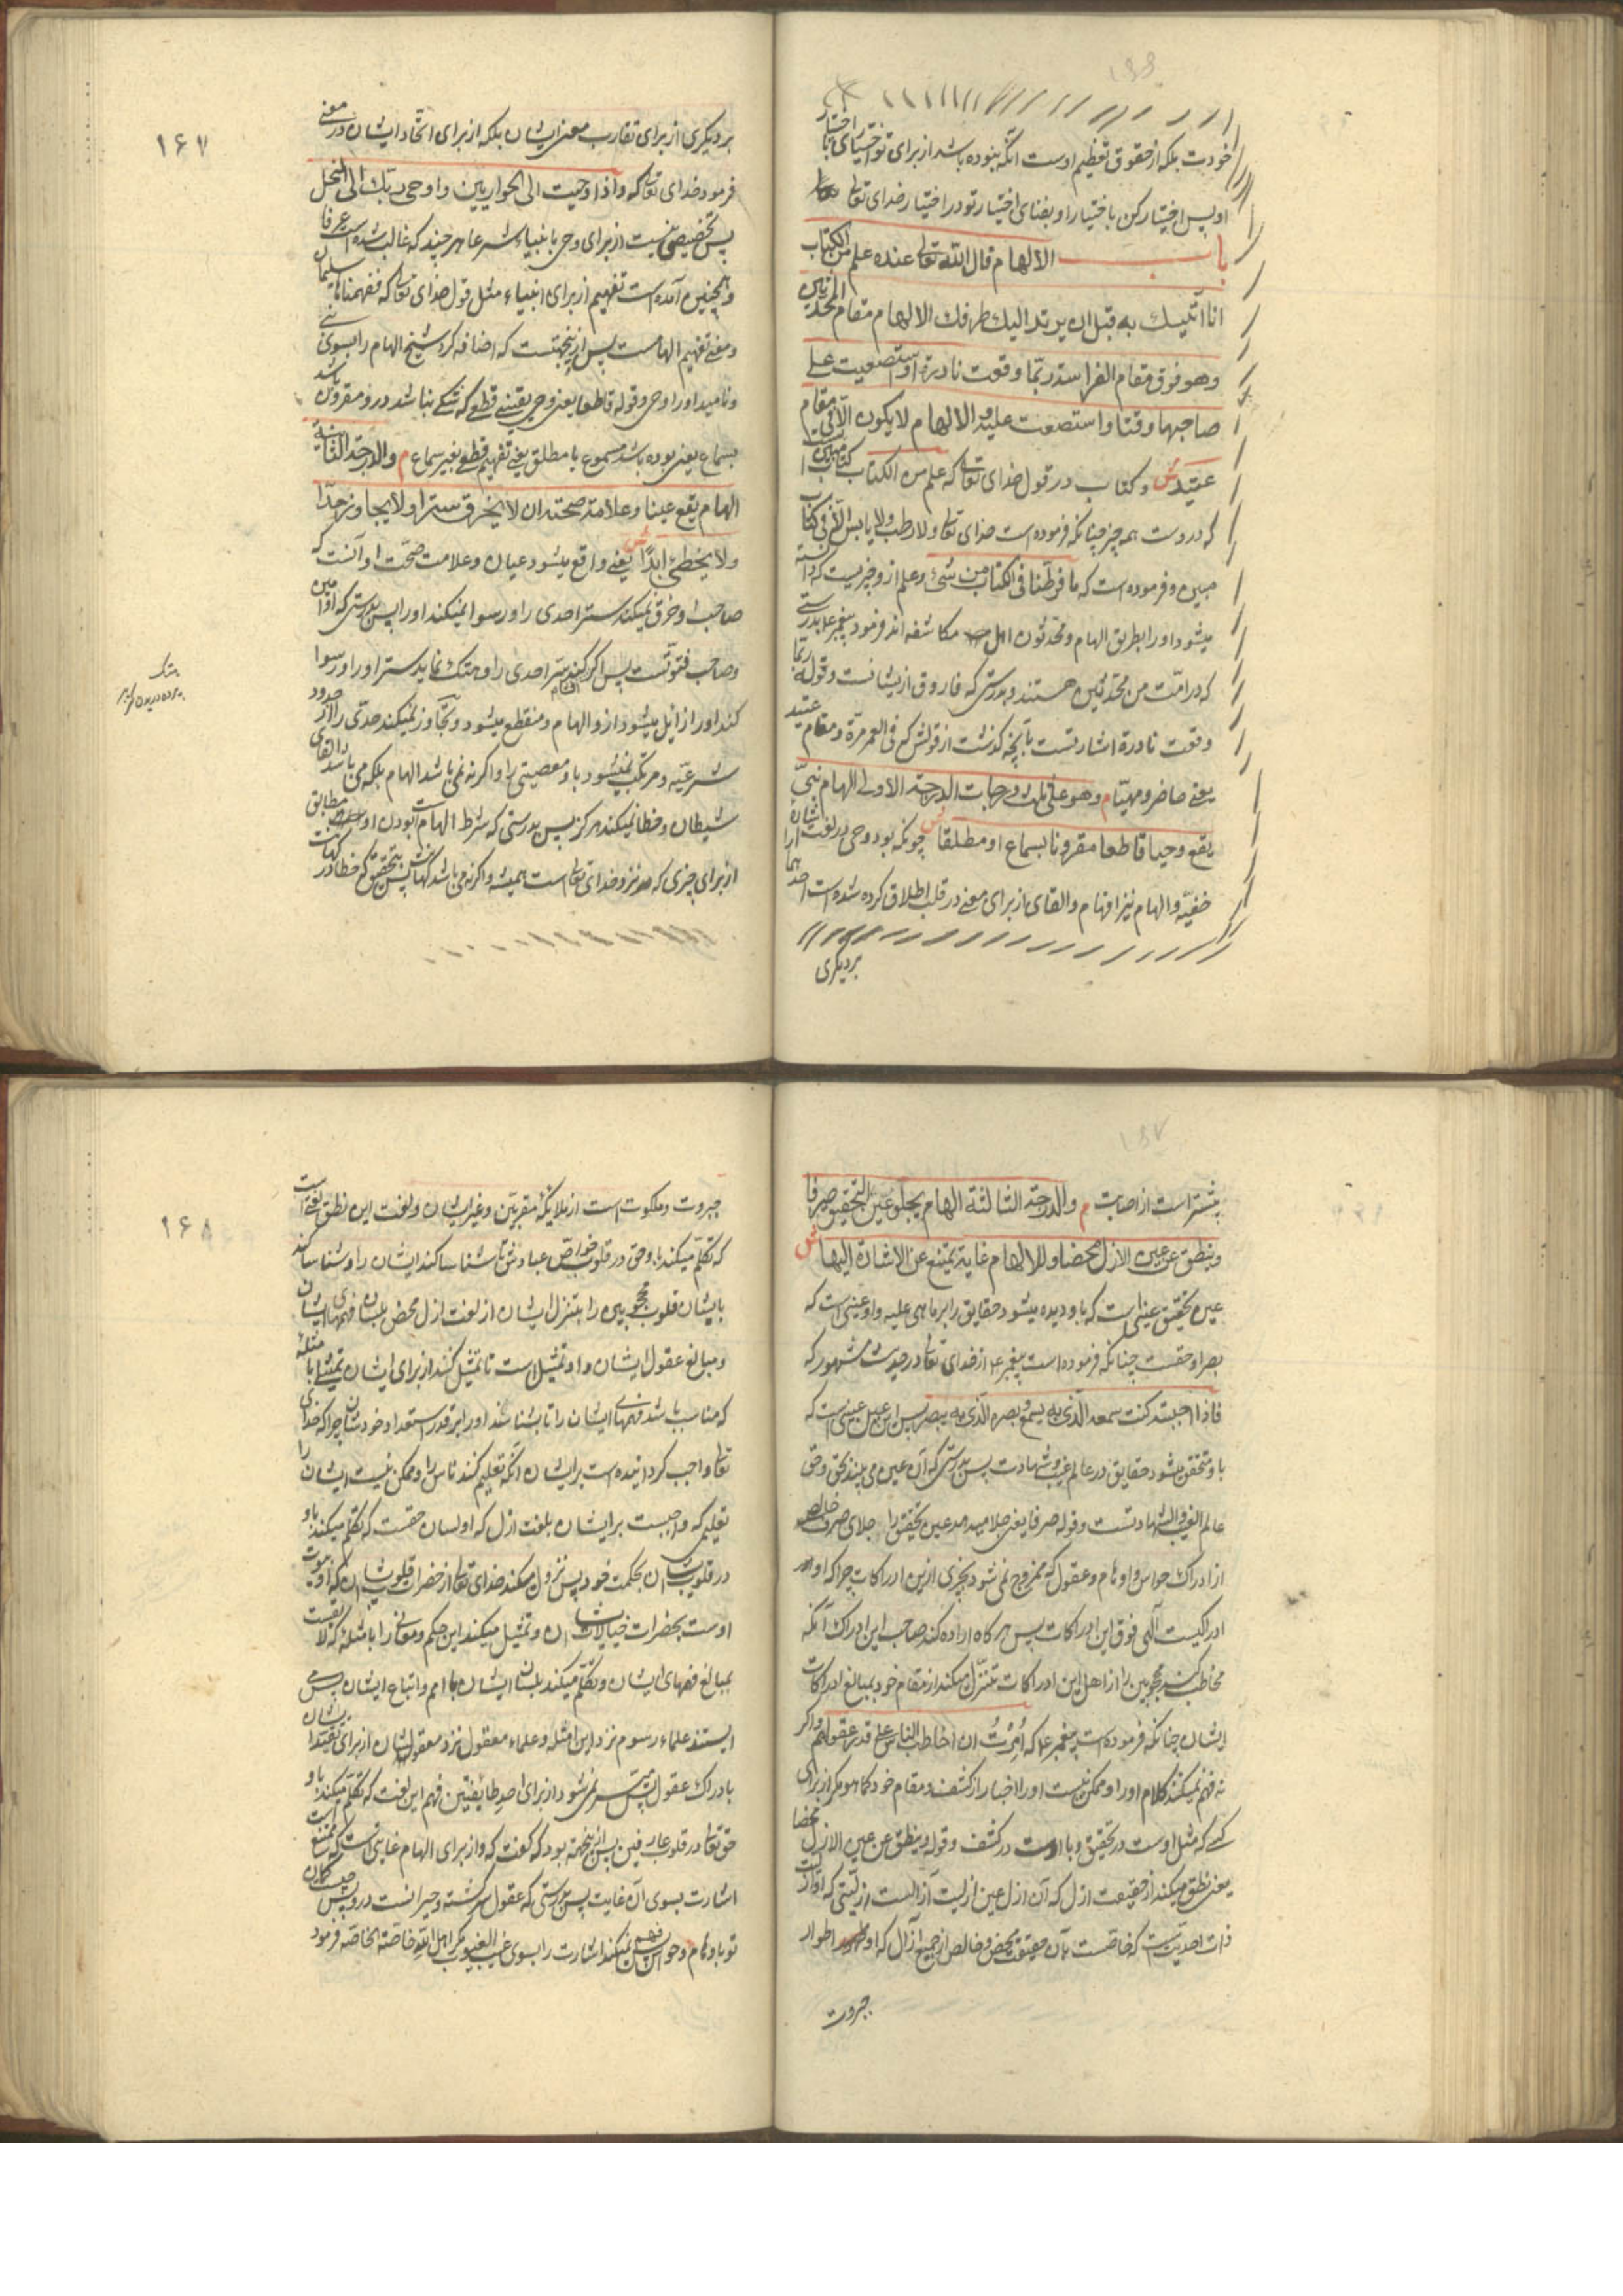 خودت بلکه از حقوق تعظیم اوست آنکه بنوده باشد از برای تو اختیاری با اختیار
او پس اختیار کن با ختیار او بفنای اختیار تو در اختیار خدای تعالی
باب الالهام قال الله تعالی عنده علم من الکتاب
انا اتیک به قبل ان یرتد الیک طرفک الالهام مقام المحدثین
وهو فوق مقام الفراسة ربما وقعت نادرة او استصعبت علی
صاحبها وقتا واستصعبت علیه والالهام لا یکون الا فی مقام
عتید ش و کتاب در قول خدای تعالی که علم من الکتاب کتاب مبین است
که دروست همه چیز چنانکه فرموده است خدای تعالی ولا رطب ولا یابس الا فی کتاب
مبین و فرموده است که ما فرطنا فی الکتاب من شئ وعلم ازو چیزیست که دانسته
میشود او را بطریق الهام و محدثون اهل مکاشفه اند فرمود پیغمبر ع بدرستی
که در امت من محدثین هستند و بدرستی که فاروق ازیشانست وقوله ربما
وقعت نادرة اشارتست بآنچه گذشت از قولش که فی العمر مرة و مقام عتید
یعنی حاضر و مهیّا م وهو علی ثلث درجات الدرجة الاولی الهام نبی
یقع وحیا قاطعا مقرونا بسماع او مطلقا ش چونکه بود وحی در لغت اشارة
خفیّه و الهام نیز افهام و القای از برای معنی در قلب اطلاق کرده شده است احدهما را
بردیگری
۱۶۷
بر دیگری از برای تقارب معنی ایشان بلکه از برای اتحاد ایشان در معنی
فرمود خدای تعالی که واذ اوحیت الی الحواریین و اوحی ربک الی النحل
پس تخصیصی نیست از برای وحی با نبیاء شرعا هر چند که غالب شده است عرفا
و همچنین آمده است تفهیم از برای انبیاء مثل قول خدای تعالی که ففهمناها سلیمان
و معنی تفهیم الهامست پس ازینجهتست که اضافه کرد شیخ الهام را بسوی نبی
و نامید او را وحی و قوله قاطعا یعنی وحی یقینی قطعی که شکی نباشد درو و مقرون باشد
بسماع یعنی بوده باشد مسموع یا مطلق یعنی تفهیم قطعی بغیر سماع م والدرجة الثانیة
الهام یقع عینا وعلامة صحته ان لا یخرق سترا ولا یجاوز حدّا
ولا یخطئ ابدًا ش یعنی واقع میشود عیان و علامت صحّت او آنست که
صاحب او خرق نمیکند ستر احدی را و رسوا نمیکند او را پس بدرستی که او امین
و صاحب فتوّتست پس اگر کند سرّ احدی را و هتک نماید ستر او را و رسوا
کند او را زایل میشود ازو الهام و منقطع میشود و تجاوز نمیکند حدّی را از حدود
شرعیّه و مرتکب نمیشود باو معصیتی را و اگر نه نمی باشد الهام بلکه می باشد القای
شیطان و خطا نمیکند هرگز پس بدرستی که شرط الهام است بودن او مطابق
از برای چیزی که نزد خدای تعالی است همیشه و اگر نه می باشد کهانت پس بتحقیق که خطا در کهانت
هتک
پرده دریدن
بیشتر است از اصابت م والدرجة الثالثة الهام یجلو عین التحقیق صرفا
وینطق عن عین الازل محضا وللالهام غایة تمتنع عن الاشارة الیها ش
عین تحقیق عینی است که باو دیده میشود حقایق را بر ما هی علیه و او عینی است که
بصر او حقست چنانکه فرموده است پیغمبر ع از خدای تعالی در حدیث مشهور که
فاذا احببته کنت سمعه الذی به یسمع و بصره الذی به یبصر پس این عین عینی است که
باو متحقق میشود حقایق در عالم غیب و شهادت پس بدرستی که آن عین می بیند بحق و حق
عالم الغیب والشهادتست و قوله صرفا یعنی جلا میدهد عین تحقیق را جلای صرف خالص
از ادراک حواس و اوهام و عقول که ممزوج نمی شود بچیزی ازین ادراکات چرا که او
ادراکیست الهی فوق این ادراکات پس هرگاه اراده کند صاحب این ادراک آنکه
مخاطب کند محجوبین را از اهل این ادراکات تنزل میکند از مقام خود بمبالغ ادراکات
ایشان چنانکه فرموده است پیغمبر ع که اُمِرْتُ ان اخاطب الناس علی قدر عقولهم و اگر
نه فهم نمیکنند کلام او را و ممکن نیست او را اخبار از کشف و مقام خود کما هو مگر از برای
کسی که مثل اوست در تحقیق و با اوست در کشف و قوله وینطق عن عین الازل محضا
یعنی نطق میکند از حقیقت ازل که آن ازل عین ازلیت آزالست ازلیتی که او ازلیت
ذات احدیّت است که خاصست بآن حقیقت محض و خالص از جمیع آزال که او اطوار
جبروت
۱۶۸
جبروت و ملکوت است از ملایکهٔ مقربین و غیر ایشان و لغت این نطق لغتی است
که تکلّم میکند باو حق در قلوب خواصّ عبادش تا شناسا کند ایشان را و شناسا کند
بایشان قلوب محجوبین را بتنزل ایشان از لغت ازل محض بلسان فهمهای ایشان
و مبالغ عقول ایشان و او تمثیل است تا تمثیل کنند از برای ایشان تمثیلی با مثله
که مناسب باشد فهمهای ایشان را تا بشناسند او را بر قدر استعداد خودشان چرا که خدای
تعالی واجب گردانیده است بر ایشان آنکه تعلیم کنند ناس را و ممکن نیست ایشان را
تعلیمی که واجبست بر ایشان بلغت ازل که او لسان حقست که تکلّم میکند باو
در قلوب ایشان بحکمت خود پس نزول میکند خدای تعالی از حضرات قلوب ایشان که او بیوت
اوست بحضرات خیالات ایشان و تمثیل میکند این حکم و معانی را بامثله که لایقست
بمبالغ فهمهای ایشان و تکلّم میکند بلسان ایشان با امم و اتباع ایشان پس می
ایستند علماء رسوم نزد این امثله و علماء معقول نزد معقول ایشان از برای تقیّد ایشان
بادراک عقول پس میسّر نمی شود از برای احد طایفتین فهم این لغت که تکلّم میکند باو
حق تعالی در قلوب عارفین پس ازینجهة بود که گفت که و از برای الهام غایتی است که ممتنع است
اشارت بسوی آن غایت پس بدرستی که عقول سرگشته و حیرانست درو پس چیست گمان
تو باوهام و حواس پس فهم نمیکند اشارت را بسوی غیب الغیوب مگر اهل الله خاصة الخاصه فرمود